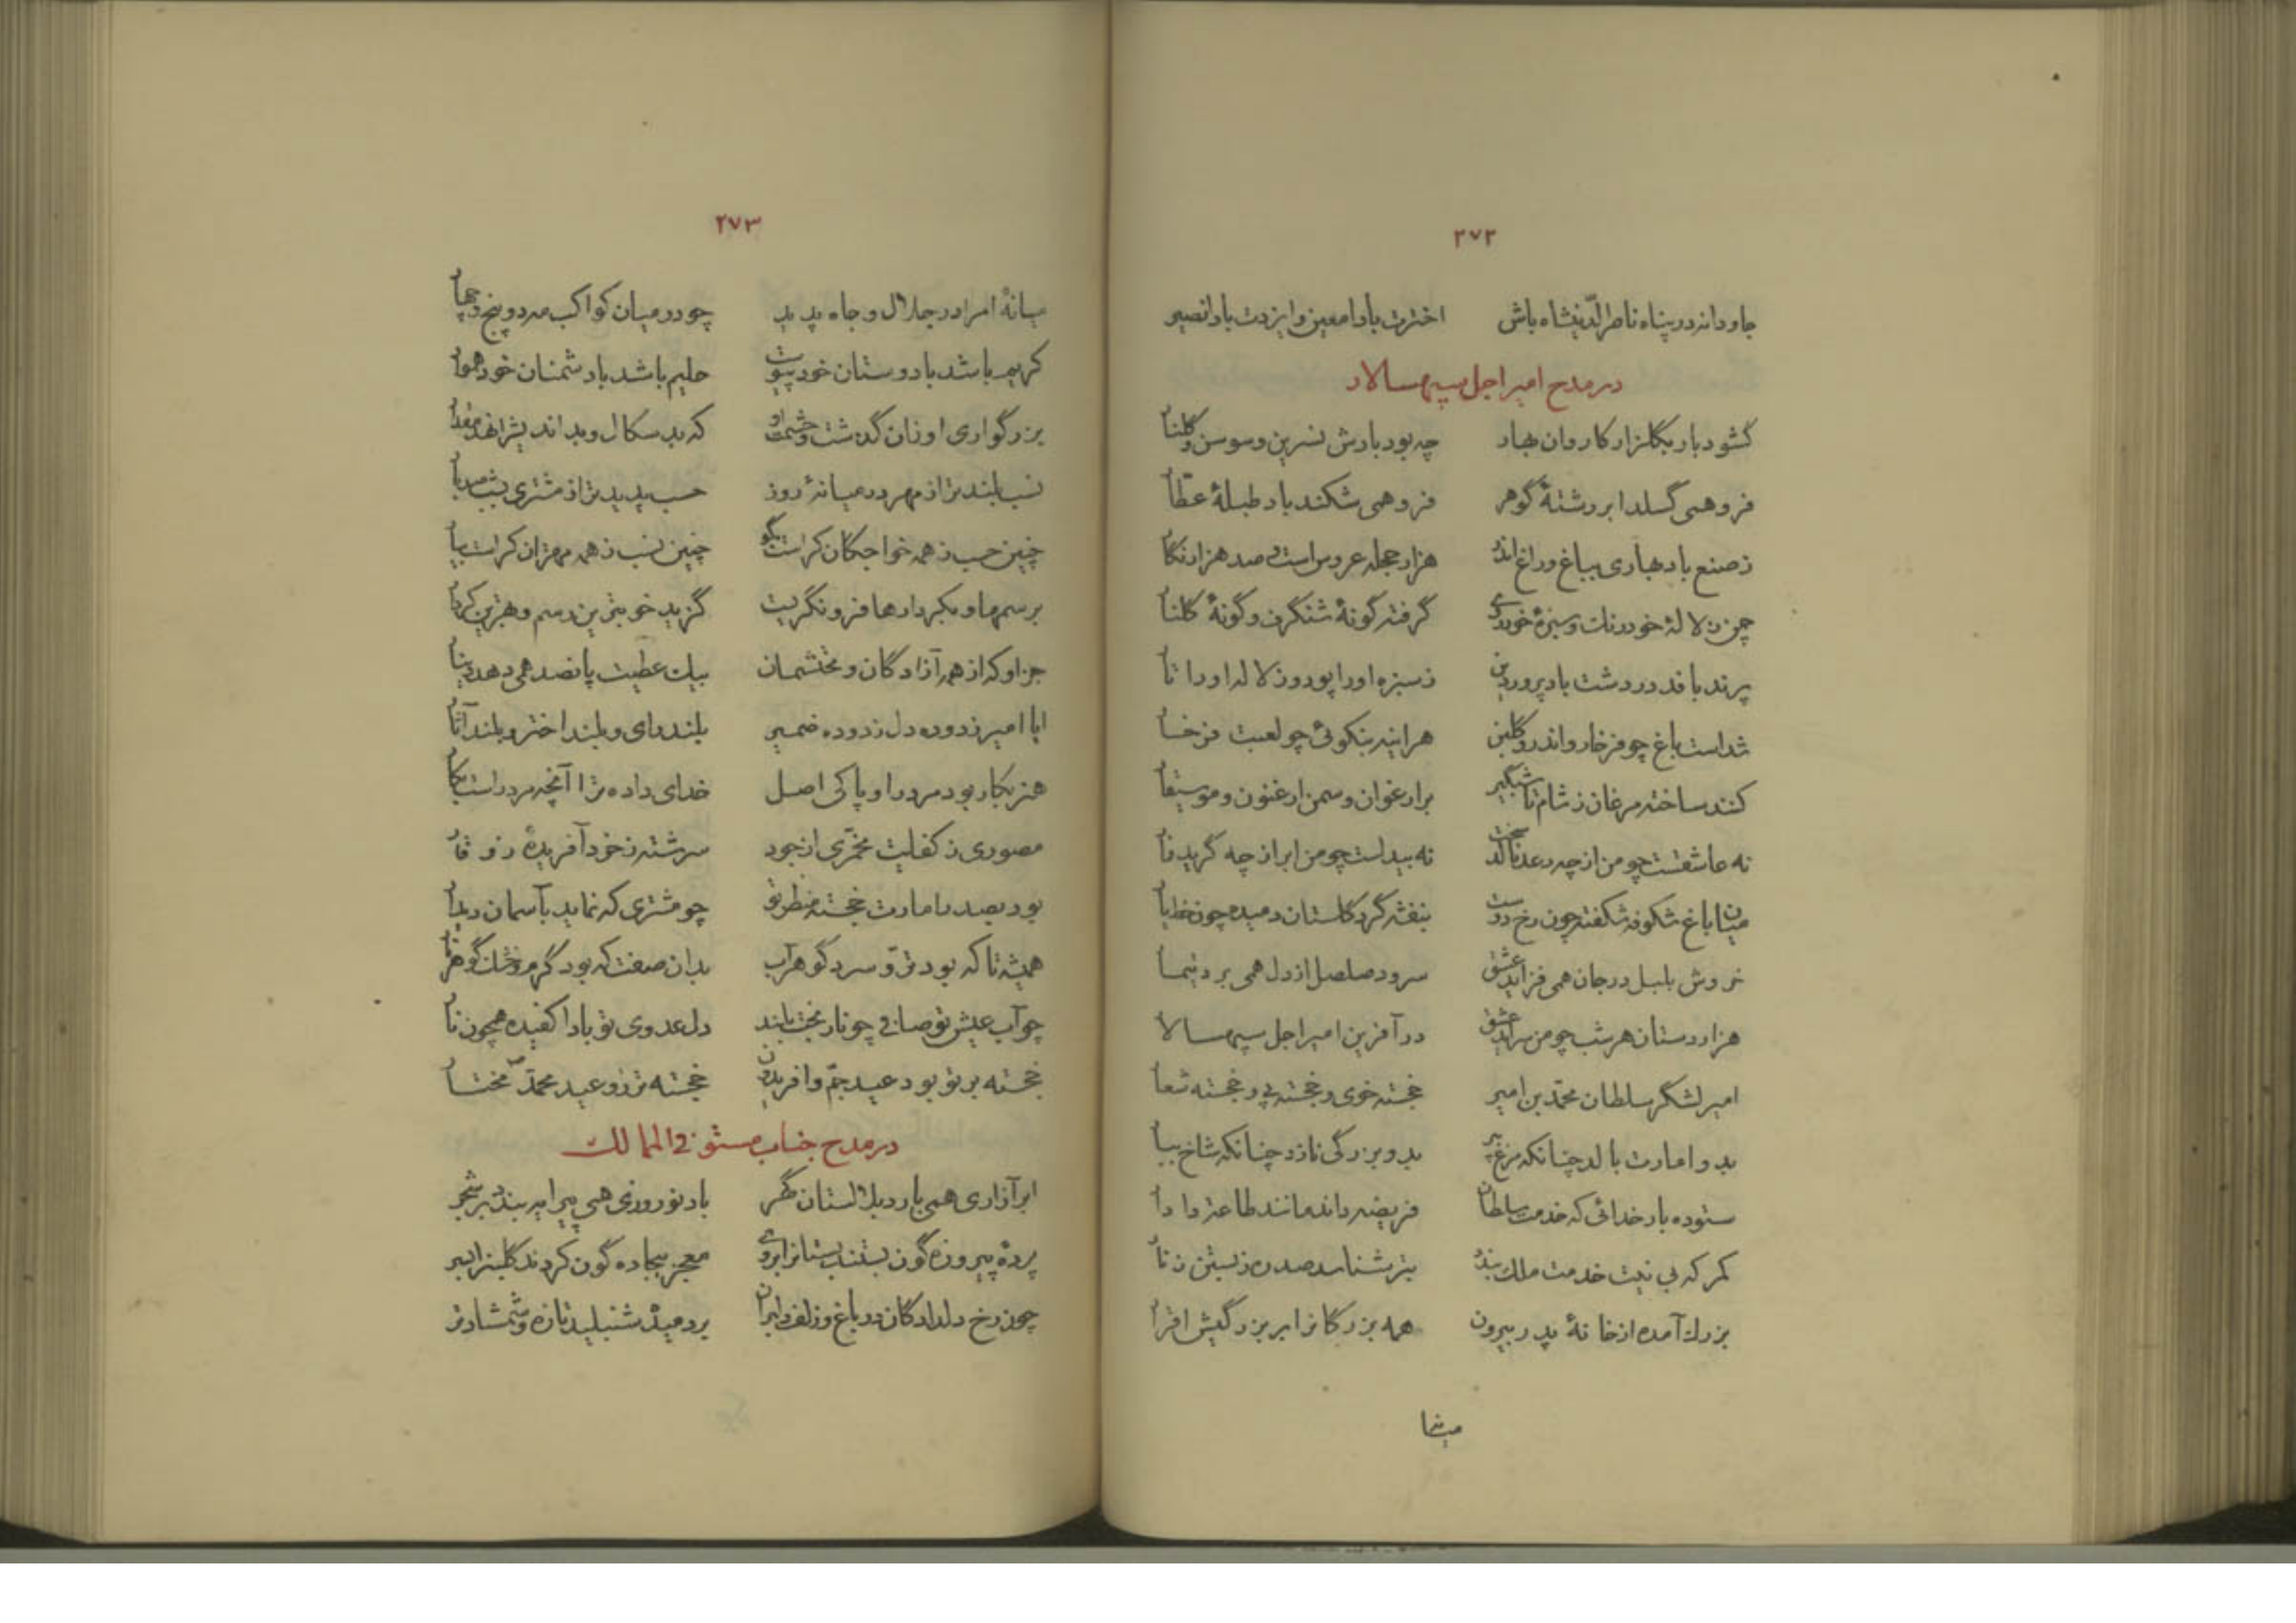 ۲۷۲
جاودانه در پناه ناصرالدینشاه باش اخترت بادا معین و ایزدت بادا نصیر
در مدح امیر اجل سپهسالار
گشود بار بگلزار کاروان بهار چه بود بارش نسرین و سوسن و گلنار
فرو همی گسلد ابر رشتهٔ گوهر فرو همی شکند باد طبلهٔ عطار
ز صنع باد بهاری بباغ و راغ اندر هزار حجله عروس است و صد هزار نگار
چمن ز لالهٔ خودرنگ و سبزهٔ خودروی گرفته گونهٔ شنگرف و گونهٔ گلنار
پرند بافد در دشت باد پروردین ز سبزه او را پود و ز لاله او را تار
شداست باغ چو فرخار و اندرو گلبن هر اینه بنکوئی چو لعبت فرخار
کنند ساخته مرغان ز شام تا شبگیر بر ارغوان و سمن ارغنون و موسیقار
نه عاشقست چو من از چه رعد نالد سخت نه بیدلست چو من ابر از چه گرید زار
میان باغ شکوفه شکفته چون رخ دوست بنفشه گرد گلستان دمیده چون خط یار
خروش بلبل در جان همی فزاید عشق سرود صلصل از دل همی برد تیمار
هزاردستان هر شب چو من سراید عشق در آفرین امیر اجل سپهسالار
امیر لشگر سلطان محمد بن امیر خجسته خوی و خجسته پی و خجسته شعار
بدو امارت بالد چنانکه مرغ بپر بدو بزرگی نازد چنانکه شاخ ببار
ستوده بار خدائی که خدمت سلطان فریضه داند مانند طاعت دادار
کمر که بی نیت خدمت ملک بندد بتر شناسد صد ره ز بستن زنار
بزرگ آمده از خانهٔ پدر بیرون همه بزرگانرا بر بزرگیش اقرار
میانهٔ
۲۷۳
میانهٔ امرا در جلال و جاه پدید چو در میان کواکب مه دو پنج و چهار
کریم باشد با دوستان خود پیوست حلیم باشد با دشمنان خود هموار
بزرگواری او زان گذشت و حشمت او که بدسکال و بداندیشرا نهد مقدار
نسب بلندتر از مهر در میانهٔ روز حسب پدیدتر از مشتری بشب صد بار
چنین حسب ز همه خواجگان کراست بگو چنین نسب ز همه مهتران کراست بیار
برسمها و بکردارها فرو نگریست گزید خوبترین رسم و بهترین کردار
جز او که از همه آزادگان و محتشمان بیک عطیت پانصد همی دهد دینار
ایا امیر زدوده دل زدوده ضمیر بلند رای و بلند اختر و بلند آثار
هنر بکار بود مرد را و پاکی اصل خدای داده ترا آنچه مرد راست بکار
مصوری ز کفایت مخمری از جود سرشته ز خود آفریدهٔ ز وقار
بود بصدر امارت خجسته منظر تو چو مشتری که نماید بآسمان دیدار
همیشه تا که بود تر و سرد گوهر آب بدان صفت که بود گرم و خشک گوهر نار
چو آب عیش تو صافی چو نار بخت بلند دل عدوی تو بادا کفیده همچون نار
خجسته بر تو بود عید جم و افریدون خجسته تر ز دو عید محمد مختار
در مدح جناب مستوفی الممالک
ابر آزاری همی بارد بلالستان گهر باد نوروزی همی پیرایه بندد بر شجر
پردهٔ پیروزه گون بستند بستانرا بروی معجز بیجاده گون کردند گلبنرا ببر
چون رخ دلدادگان در باغ و زلف دلبران بر دمیده شنبلید تازه و شمشاد تر